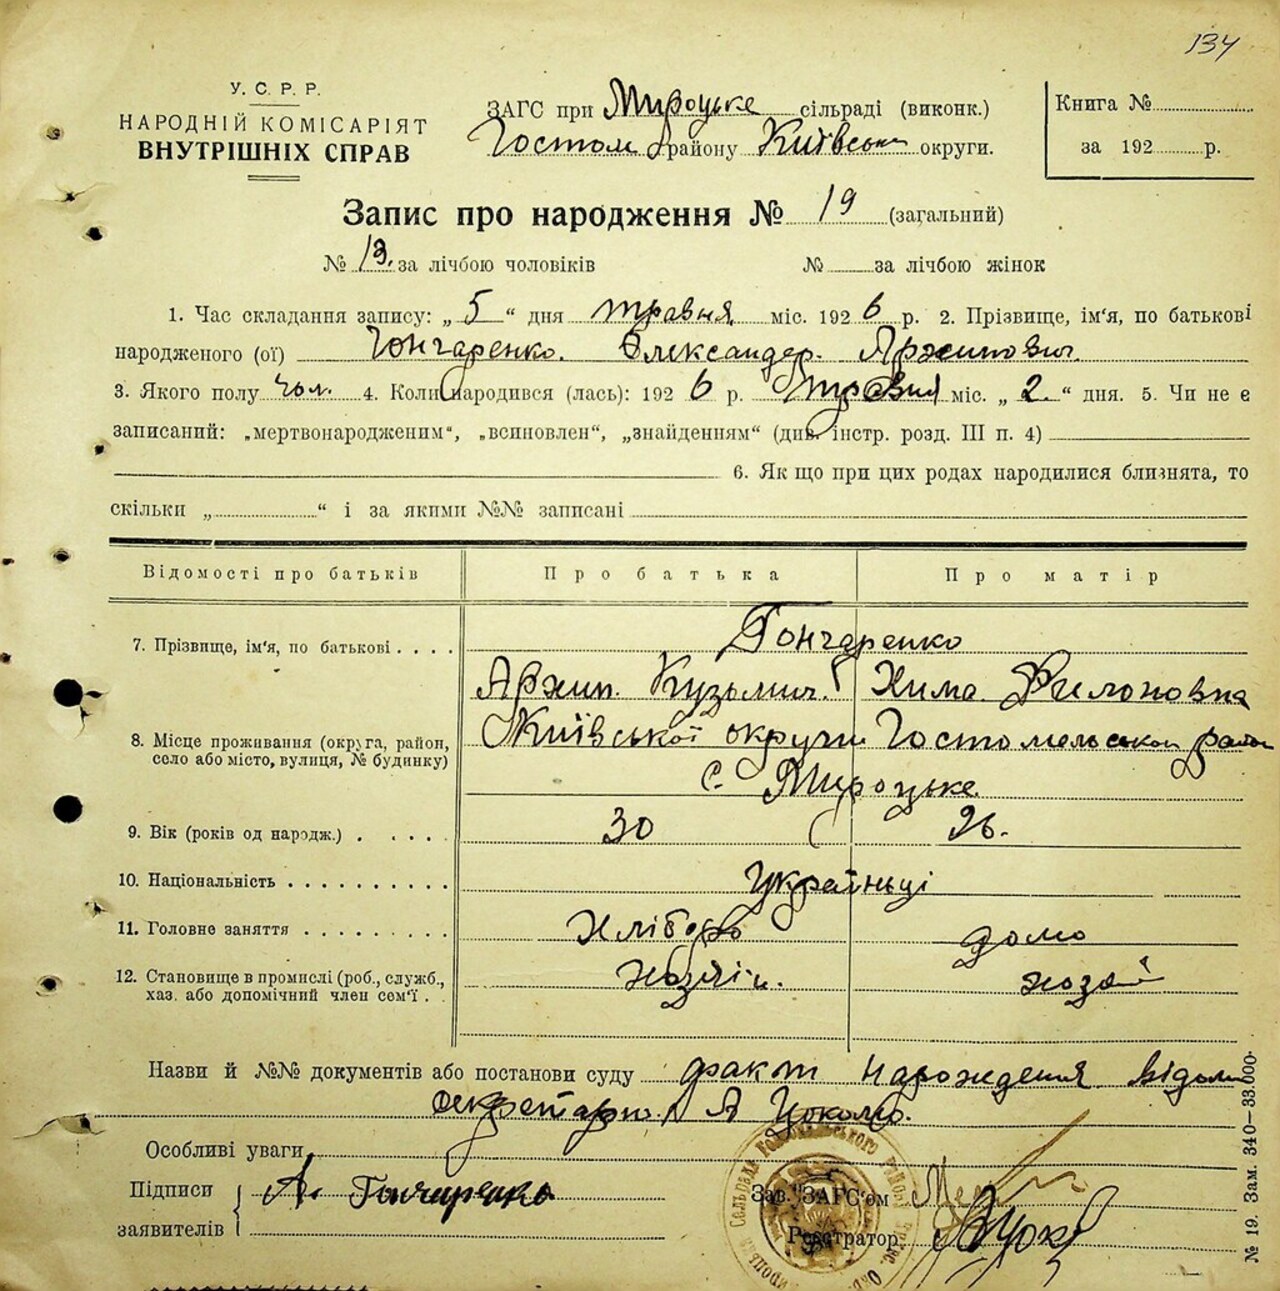 134
У. С. Р. Р.
НАРОДНІЙ КОМІСАРІЯТ
ВНУТРІШНІХ СПРАВ
ЗАГС при Мироцьке сільраді (виконк.)
Гостом району Київськ округи.
Книга №
за 192 р.
Запис про народження № 19 (загальний)
№ 13. за лічбою чоловіків № за лічбою жінок
1. Час складання запису: „ 5 “ дня травня міс. 192 6 р. 2. Прізвище, ім'я, по батькові
народженого (ої) Гончаренко. Олександер. Архипович
3. Якого полу чол. 4. Коли народився (лась): 192 6 р. травня міс. „ 2. “ дня. 5. Чи не є
записаний: „мертвонародженим“, „всиновлен“, „знайденням“ (див. інстр. розд. III п. 4)
6. Як що при цих родах народилися близнята, то
скільки „ “ і за якими №№ записані
Відомості про батьків Про батька Про матір
7. Прізвище, ім'я, по батькові . . . . Гончаренко
Архип. Кузьмич. Хима Филоновна
8. Місце проживання (округа, район, село або місто, вулиця, № будинку) Київської округи Гостомельської район
с. Мироцьке
9. Вік (років од народж.) . . . . . 30 26.
10. Національність . . . . . . . . . . Україньці
11. Головне заняття . . . . . . . . . Хлібороб домо
12. Становище в промислі (роб., служб., хаз. або допомічний член сем'ї . . хозяін. хозяй
Назви й №№ документів або постанови суду факт нарождення відом
секретарю. А Цоколю.
Особливі уваги
Підписи
заявителів А. Гончаренко
Зав. "ЗАГС'ом
Реєстратор
№ 19. Зам. 340—33.000